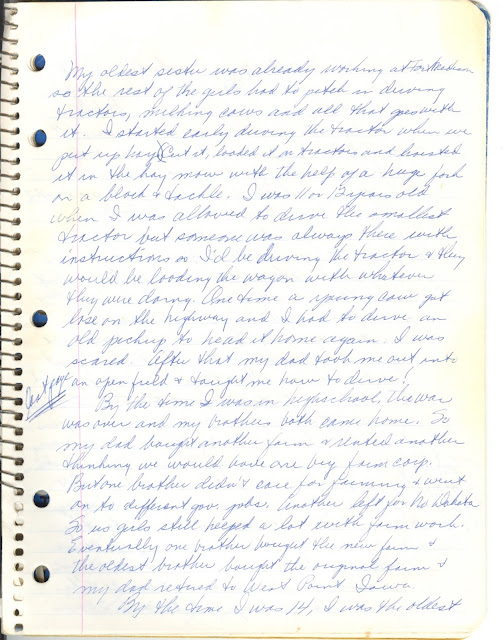 My oldest sister was already working at Fort Madison
so the rest of the girls had to pitch in driving
tractors, milking cows and all that goes with
it. I started early driving the tractor when we
put up hay (Cut it, loaded it on tractors and hoisted
it in the hay mow with the help of a huge fork
on a block & tackle. I was 11 or 12 years old
when I was allowed to drive the smallest
tractor but someone was always there with
instructions so I'd be driving the tractor & they
would be loading the wagon with whatever
they were doing. One time a young cow got
lose on the highway and I had to drive an
old pickup to head it home again. I was
scared. After that my dad took me out into
an open field & taught me how to drive!
By the time I was in highschool the war
was over and my brothers both came home. So
my dad bought another farm & rented another
thinking we would have one big farm corp.
But one brother didn't care for farming & went
on to different gov. jobs. Another left for No Dakota
So us girls still helped a lot with farm work.
Eventually one brother bought the new farm &
the oldest brother bought the original farm &
my dad retired to West Point Iowa.
By the time I was 14, I was the oldest